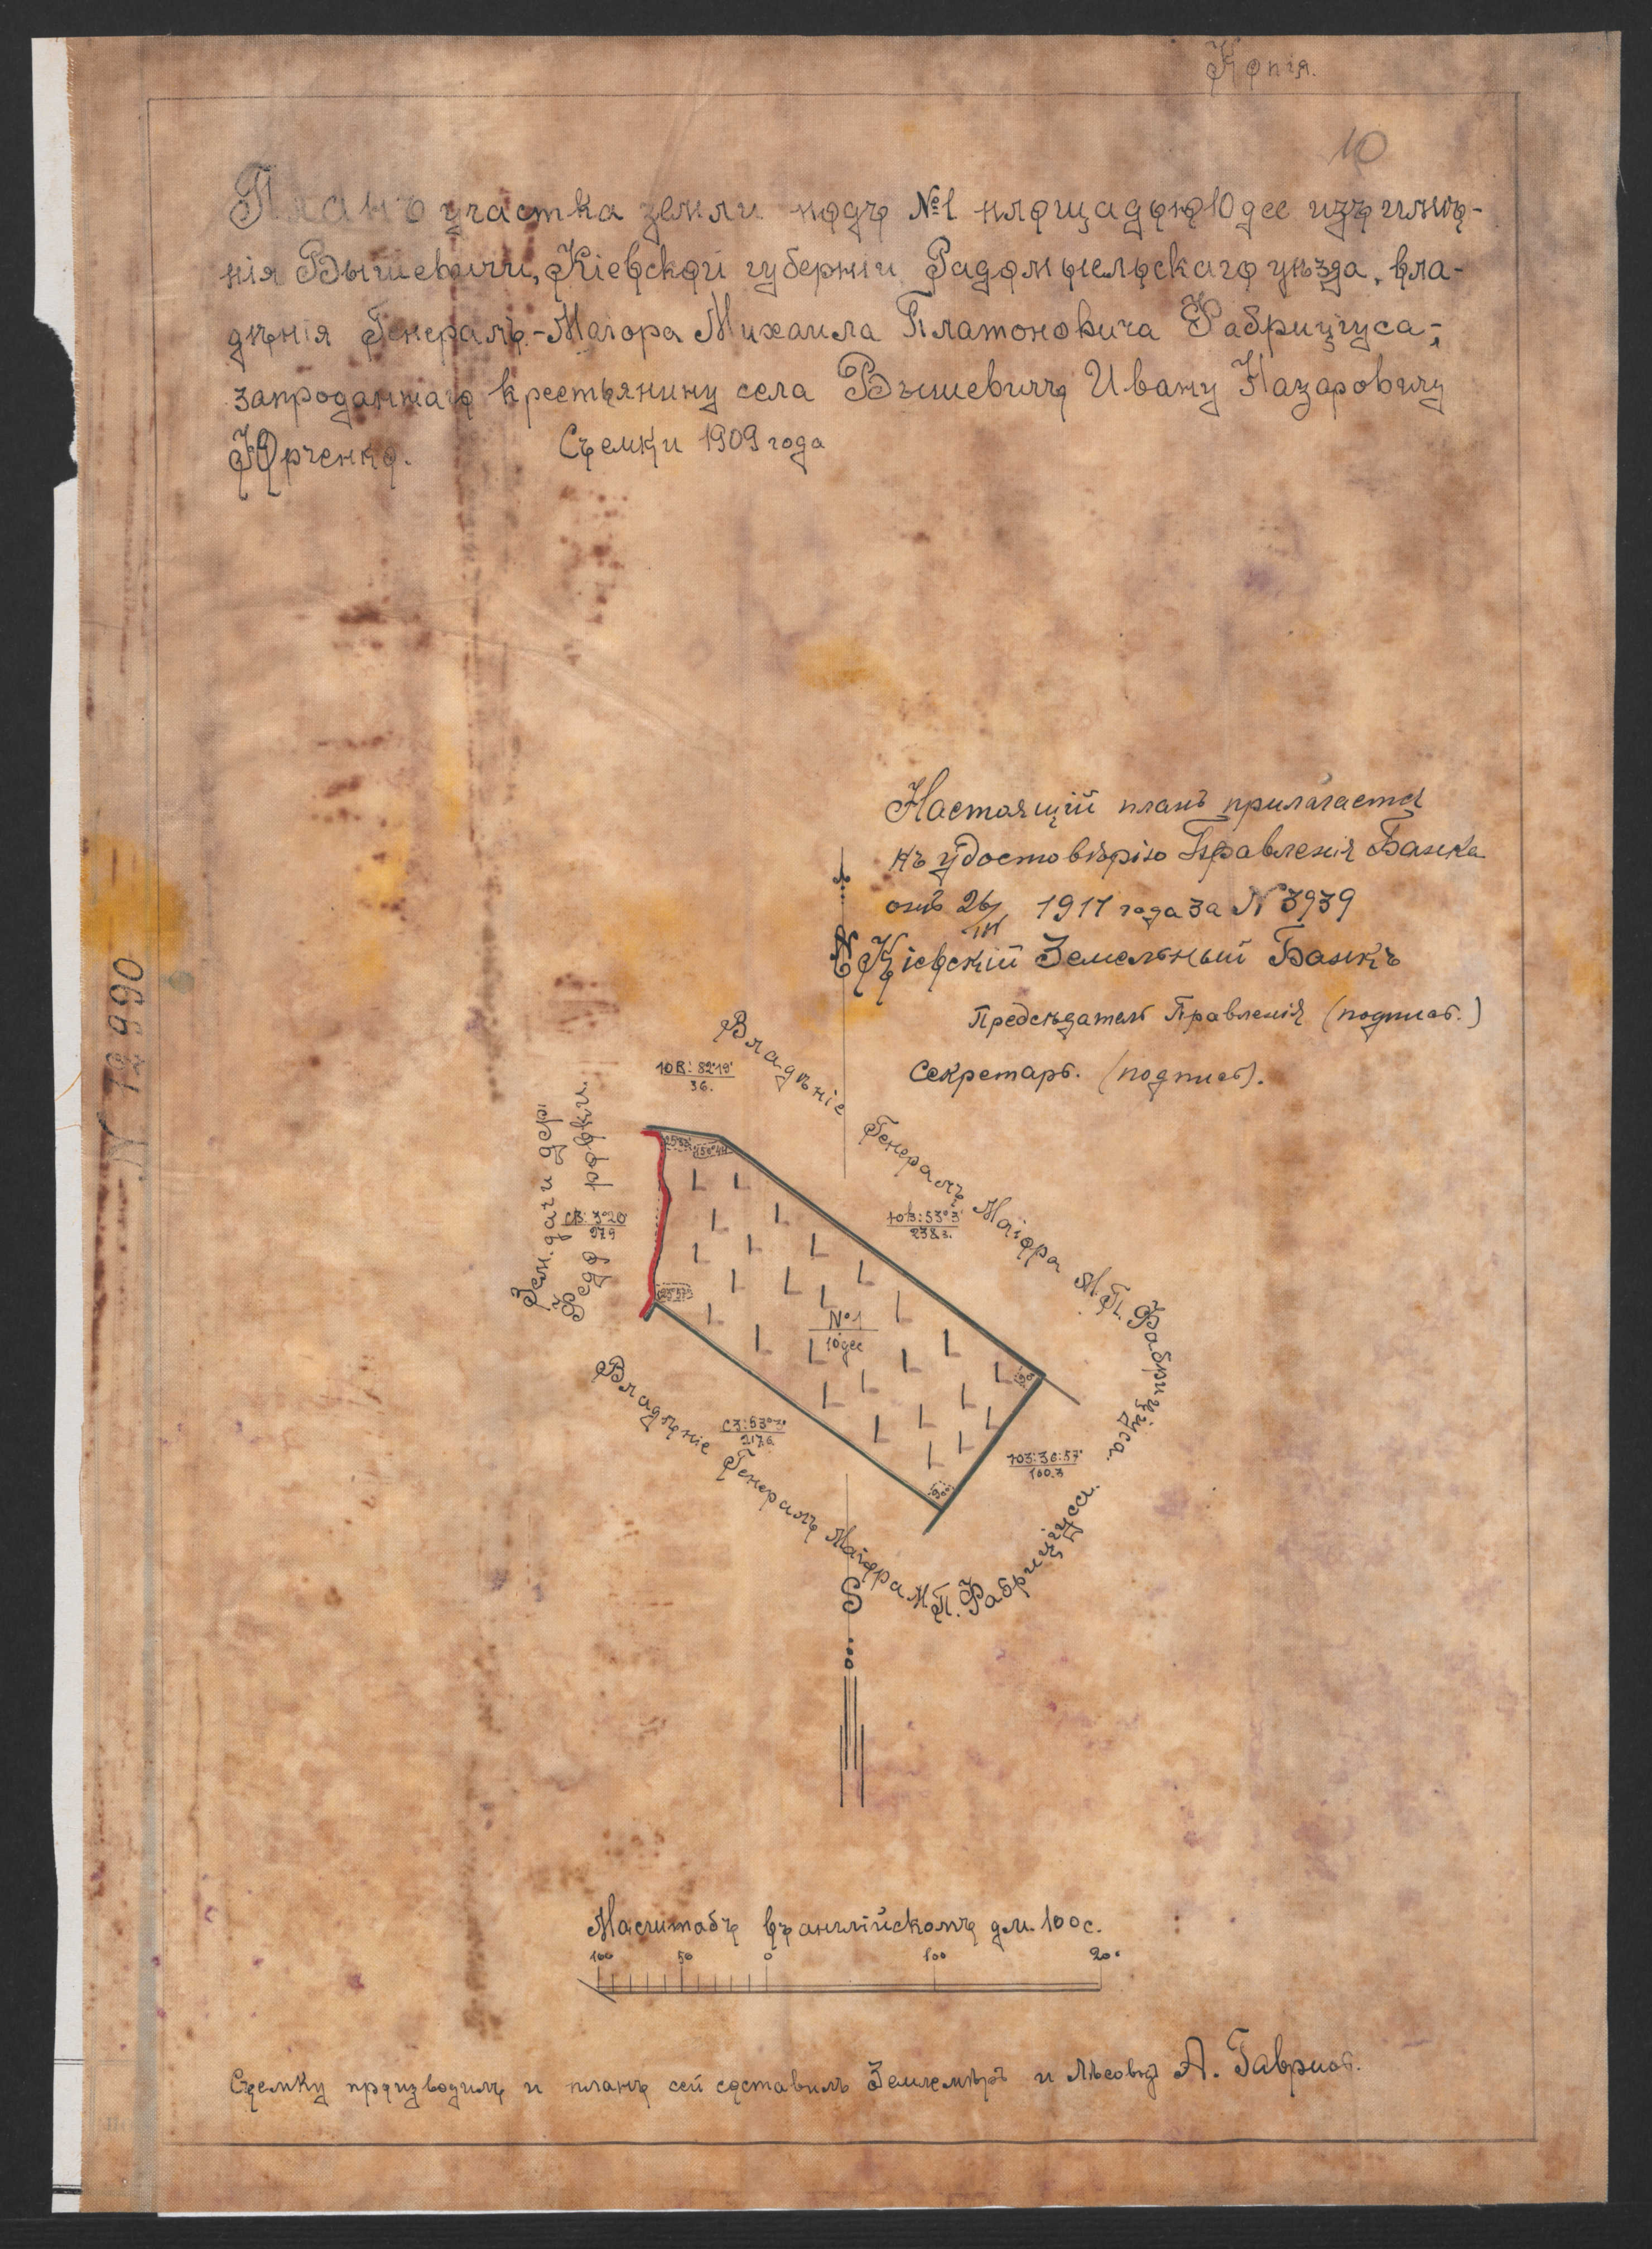 Копія.
10
Планъ участка земли подъ №1 площадью 10 дес изъ имѣ-
нія Вышевичи, Кіевской губерніи Радомысльскаго уѣзда, вла-
дѣнія Генералъ-Маіора Михаила Платоновича Фабриціуса,-
запроданнаго крестьянину села Вышевичъ Ивану Назаровичу
Юрченко. Съемки 1909 года
Настоящій планъ прилагается
къ удостовѣрію Правленія Банка
отъ 26/III 1911 года за N 3939
N
Кіевскій Земельный Банкъ
Предсѣдатель Правленія (подпись.)
Секретарь. (подпись).
N 12990
Владѣніе Генералъ Маіора М. П. Фабриціуса.
ЮВ: 82°19'
36.
Зем. дачи дер.
Федоровки.
СВ: 3°20'
97.9
ЮВ: 53°3'
238.2.
№1
10 дес
90°
90°
СЗ: 53°3'
217.6
ЮЗ: 36:57'
100.3
Владѣніе Генералъ Маіора М. П. Фабриціуса.
S
Масштабъ въ англійскомъ дм. 100 с.
100 50 0 100 200
Съемку производилъ и планъ сей составилъ Землемѣръ и Лѣсоводъ А. Гаврись.